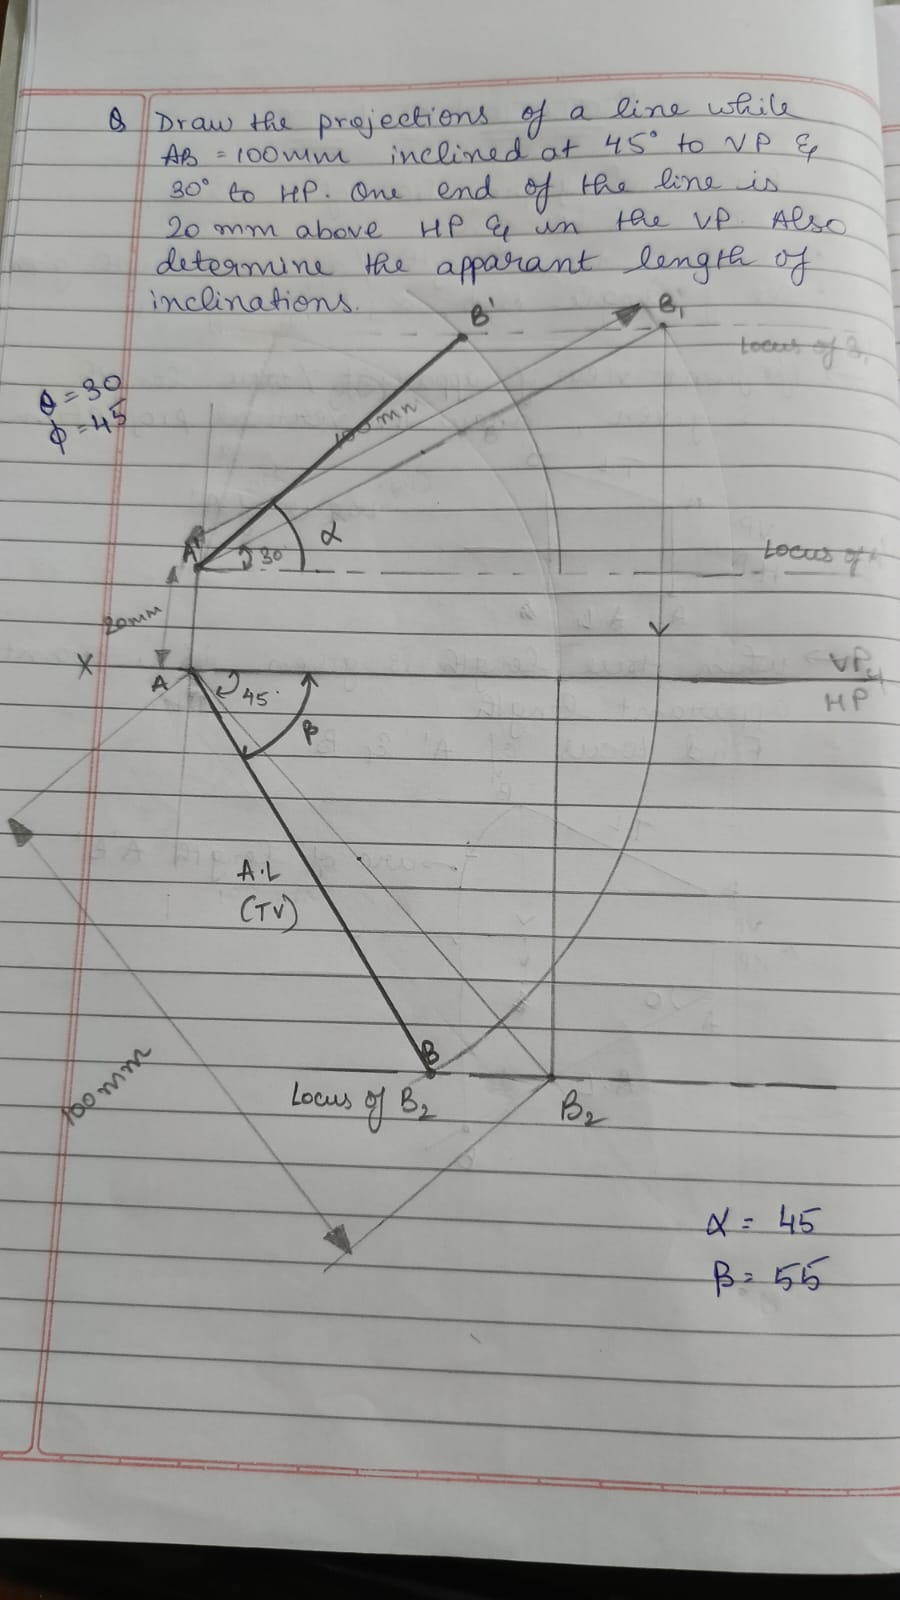 Q Draw the projections of a line while
AB = 100mm inclined at 45° to VP &
30° to HP. One end of the line is
20 mm above HP & in the VP. Also
determine the apparant length of
inclinations.
B'
B₁
Locus of B₁
θ = 30
ϕ = 45
100mm
A'
30°
α
Locus of
20mm
X
A
45°
β
VP
HP
A.L
(TV)
100mm
B
Locus of B₂
B₂
α = 45
β = 55